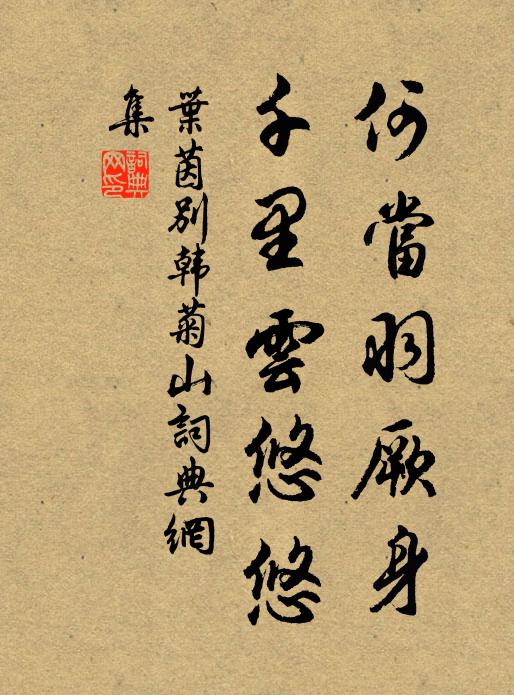 何當羽厥身
千里雲悠悠
葉茵別韩菊山詞典網
集
詞典
网印